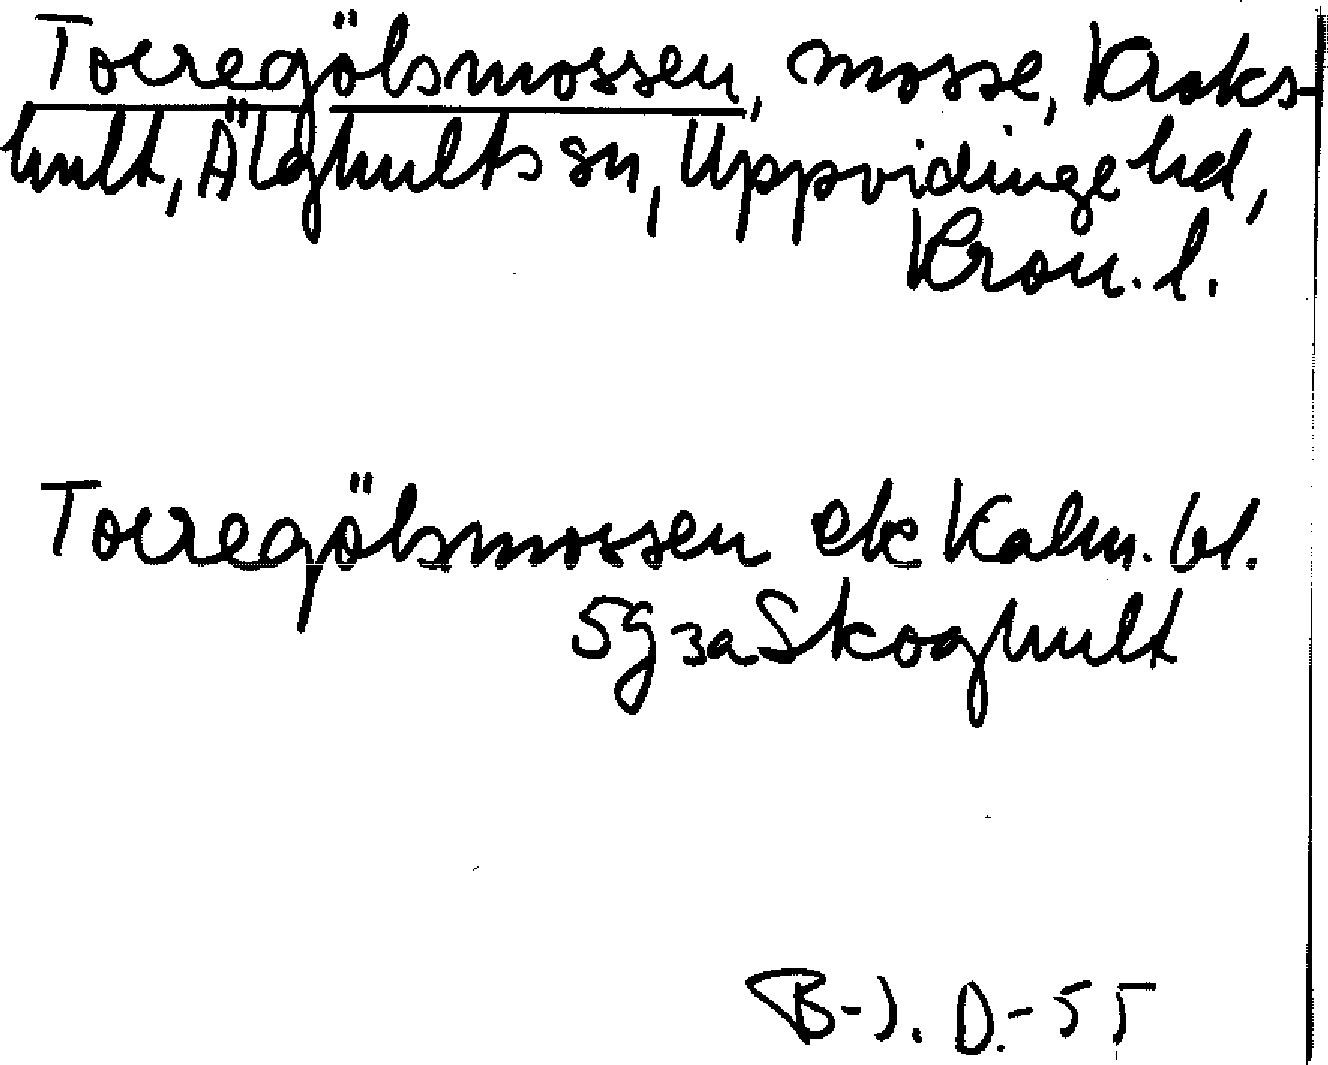 Torregölsmossen, mosse, Kroks-
hult, Älghults sn, Uppvidinge hd,
Kron. l.
Torregölsmossen ek Kalm. bl.
5g 3a Skoghult
B-J. D.-55